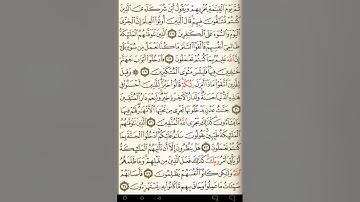 ثُمَّ يَوْمَ ٱلْقِيَٰمَةِ يُخْزِيهِمْ وَيَقُولُ أَيْنَ شُرَكَآءِىَ ٱلَّذِينَ
كُنتُمْ تُشَٰٓقُّونَ فِيهِمْ قَالَ ٱلَّذِينَ أُوتُوا۟ ٱلْعِلْمَ إِنَّ ٱلْخِزْىَ
ٱلْيَوْمَ وَٱلسُّوٓءَ عَلَى ٱلْكَٰفِرِينَ ٢٧ ٱلَّذِينَ تَتَوَفَّىٰهُمُ ٱلْمَلَٰٓئِكَةُ
ظَالِمِىٓ أَنفُسِهِمْ فَأَلْقَوُا۟ ٱلسَّلَمَ مَا كُنَّا نَعْمَلُ مِن سُوٓءٍۭ بَلَىٰٓ
إِنَّ ٱللَّهَ عَلِيمٌۢ بِمَا كُنتُمْ تَعْمَلُونَ ٢٨ فَٱدْخُلُوٓا۟ أَبْوَٰبَ جَهَنَّمَ
خَٰلِدِينَ فِيهَا فَلَبِئْسَ مَثْوَى ٱلْمُتَكَبِّرِينَ ٢٩ ۞ وَقِيلَ
لِلَّذِينَ ٱتَّقَوْا۟ مَاذَآ أَنزَلَ رَبُّكُمْ قَالُوا۟ خَيْرًا لِّلَّذِينَ أَحْسَنُوا۟ فِى
هَٰذِهِ ٱلدُّنْيَا حَسَنَةٌ وَلَدَارُ ٱلْءَاخِرَةِ خَيْرٌ وَلَنِعْمَ دَارُ ٱلْمُتَّقِينَ
٣٠ جَنَّٰتُ عَدْنٍ يَدْخُلُونَهَا تَجْرِى مِن تَحْتِهَا ٱلْأَنْهَٰرُ لَهُمْ فِيهَا
مَا يَشَآءُونَ كَذَٰلِكَ يَجْزِى ٱللَّهُ ٱلْمُتَّقِينَ ٣١ ٱلَّذِينَ تَتَوَفَّىٰهُمُ
ٱلْمَلَٰٓئِكَةُ طَيِّبِينَ يَقُولُونَ سَلَٰمٌ عَلَيْكُمُ ٱدْخُلُوا۟ ٱلْجَنَّةَ بِمَا كُنتُمْ
تَعْمَلُونَ ٣٢ هَلْ يَنظُرُونَ إِلَّآ أَن تَأْتِيَهُمُ ٱلْمَلَٰٓئِكَةُ
أَوْ يَأْتِىَ أَمْرُ رَبِّكَ كَذَٰلِكَ فَعَلَ ٱلَّذِينَ مِن قَبْلِهِمْ وَمَا ظَلَمَهُمُ
ٱللَّهُ وَلَٰكِن كَانُوٓا۟ أَنفُسَهُمْ يَظْلِمُونَ ٣٣ فَأَصَابَهُمْ
سَيِّـَٔاتُ مَا عَمِلُوا۟ وَحَاقَ بِهِم مَّا كَانُوا۟ بِهِۦ يَسْتَهْزِءُونَ ٣٤